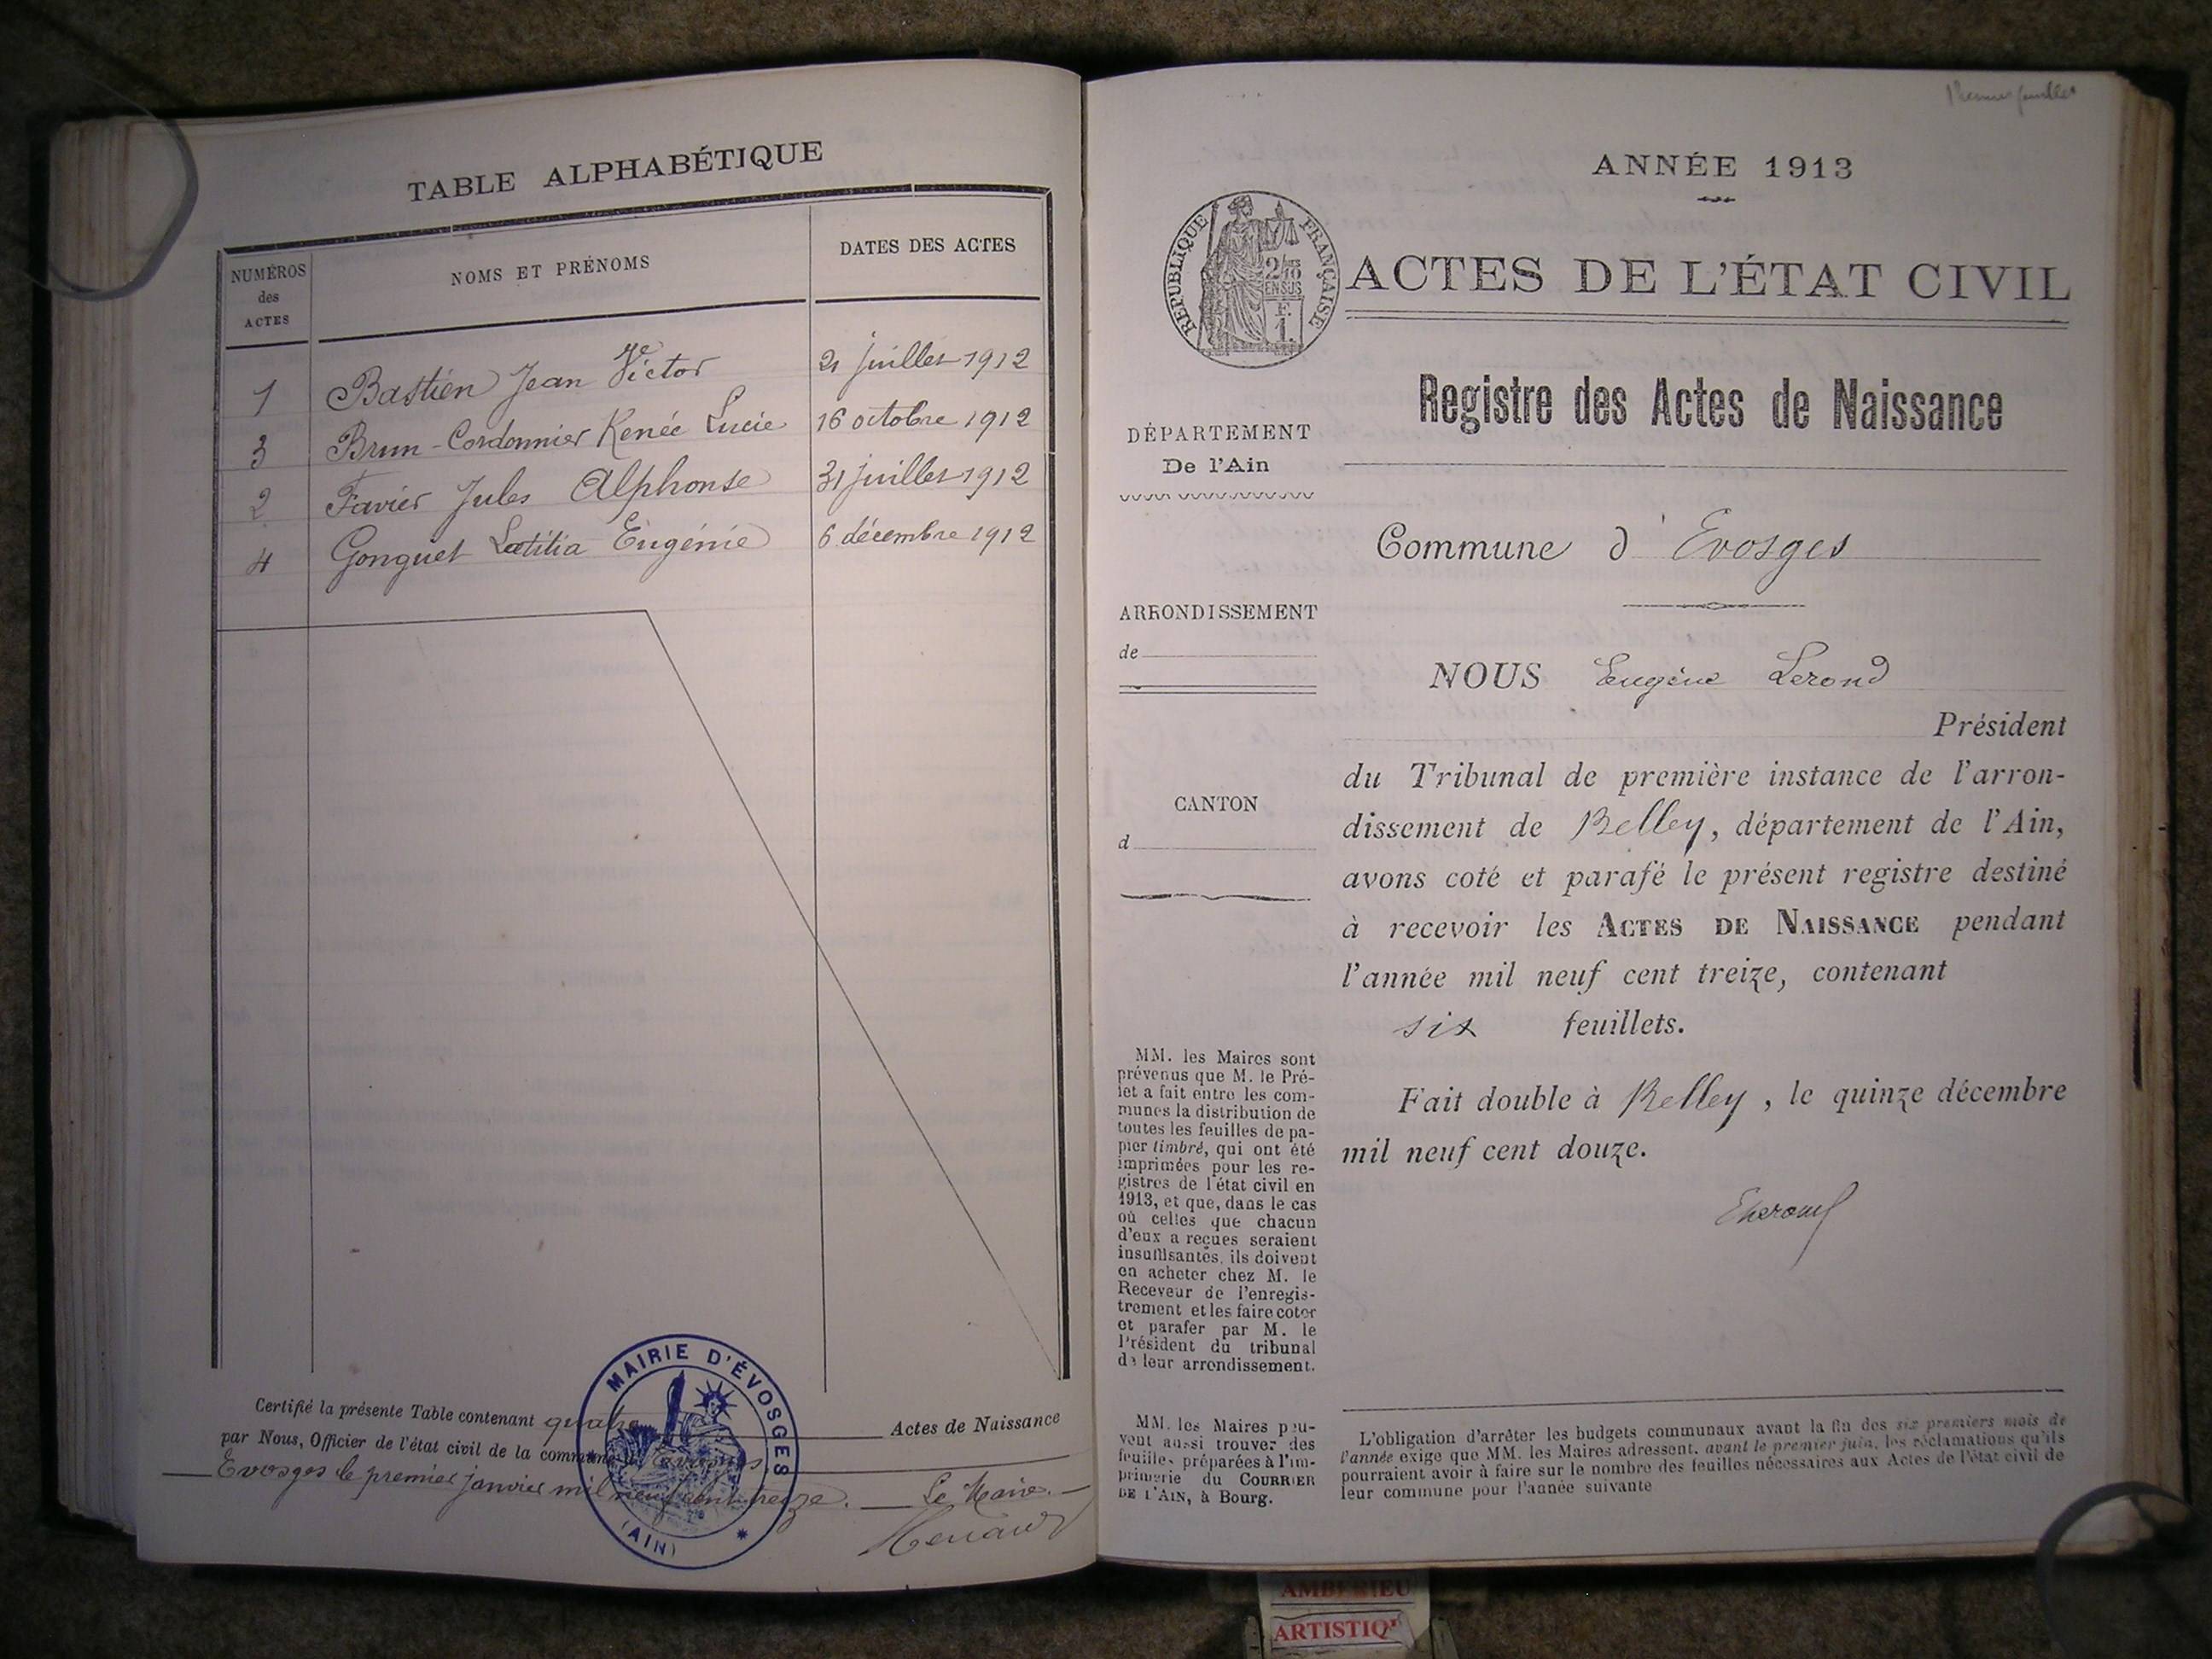 TABLE ALPHABÉTIQUE
NUMÉROS des ACTES
NOMS ET PRÉNOMS
DATES DES ACTES
1 Bastien Jean Victor 21 juillet 1912
3 Brun-Cordonnier Renée Lucie 16 octobre 1912
2 Favier Jules Alphonse 31 juillet 1912
4 Gonguet Lætitia Eugénie 6 décembre 1912
Certifié la présente Table contenant quatre Actes de Naissance
par Nous, Officier de l'état civil de la commune d'Evosges
Evosges le premier janvier mil neuf cent treize. Le Maire.
MAIRIE D'ÉVOSGES
(AIN)
ANNÉE 1913
RÉPUBLIQUE FRANÇAISE
2/10 EN SUS
F. 1.
ACTES DE L'ÉTAT CIVIL
Registre des Actes de Naissance
DÉPARTEMENT
De l'Ain
Commune d'Evosges
ARRONDISSEMENT
de
NOUS Eugène Lerond
Président
du Tribunal de première instance de l'arron-
dissement de Belley, département de l'Ain,
avons coté et parafé le présent registre destiné
à recevoir les ACTES DE NAISSANCE pendant
l'année mil neuf cent treize, contenant
six feuillets.
Fait double à Belley, le quinze décembre
mil neuf cent douze.
CANTON
d
MM. les Maires sont
prévenus que M. le Pré-
fet a fait entre les com-
munes la distribution de
toutes les feuilles de pa-
pier timbré, qui ont été
imprimées pour les re-
gistres de l'état civil en
1913, et que, dans le cas
où celles que chacun
d'eux a reçues seraient
insuffisantes, ils doivent
en acheter chez M. le
Receveur de l'enregis-
trement et les faire coter
et parafer par M. le
Président du tribunal
de leur arrondissement.
MM. les Maires peu-
vent aussi trouver des
feuilles préparées à l'im-
primerie du COURRIER
DE L'AIN, à Bourg.
L'obligation d'arrêter les budgets communaux avant la fin des six premiers mois de
l'année exige que MM. les Maires adressent, avant le premier juin, les réclamations qu'ils
pourraient avoir à faire sur le nombre des feuilles nécessaires aux Actes de l'état civil de
leur commune pour l'année suivante
AMBERIEU
ARTISTIQ